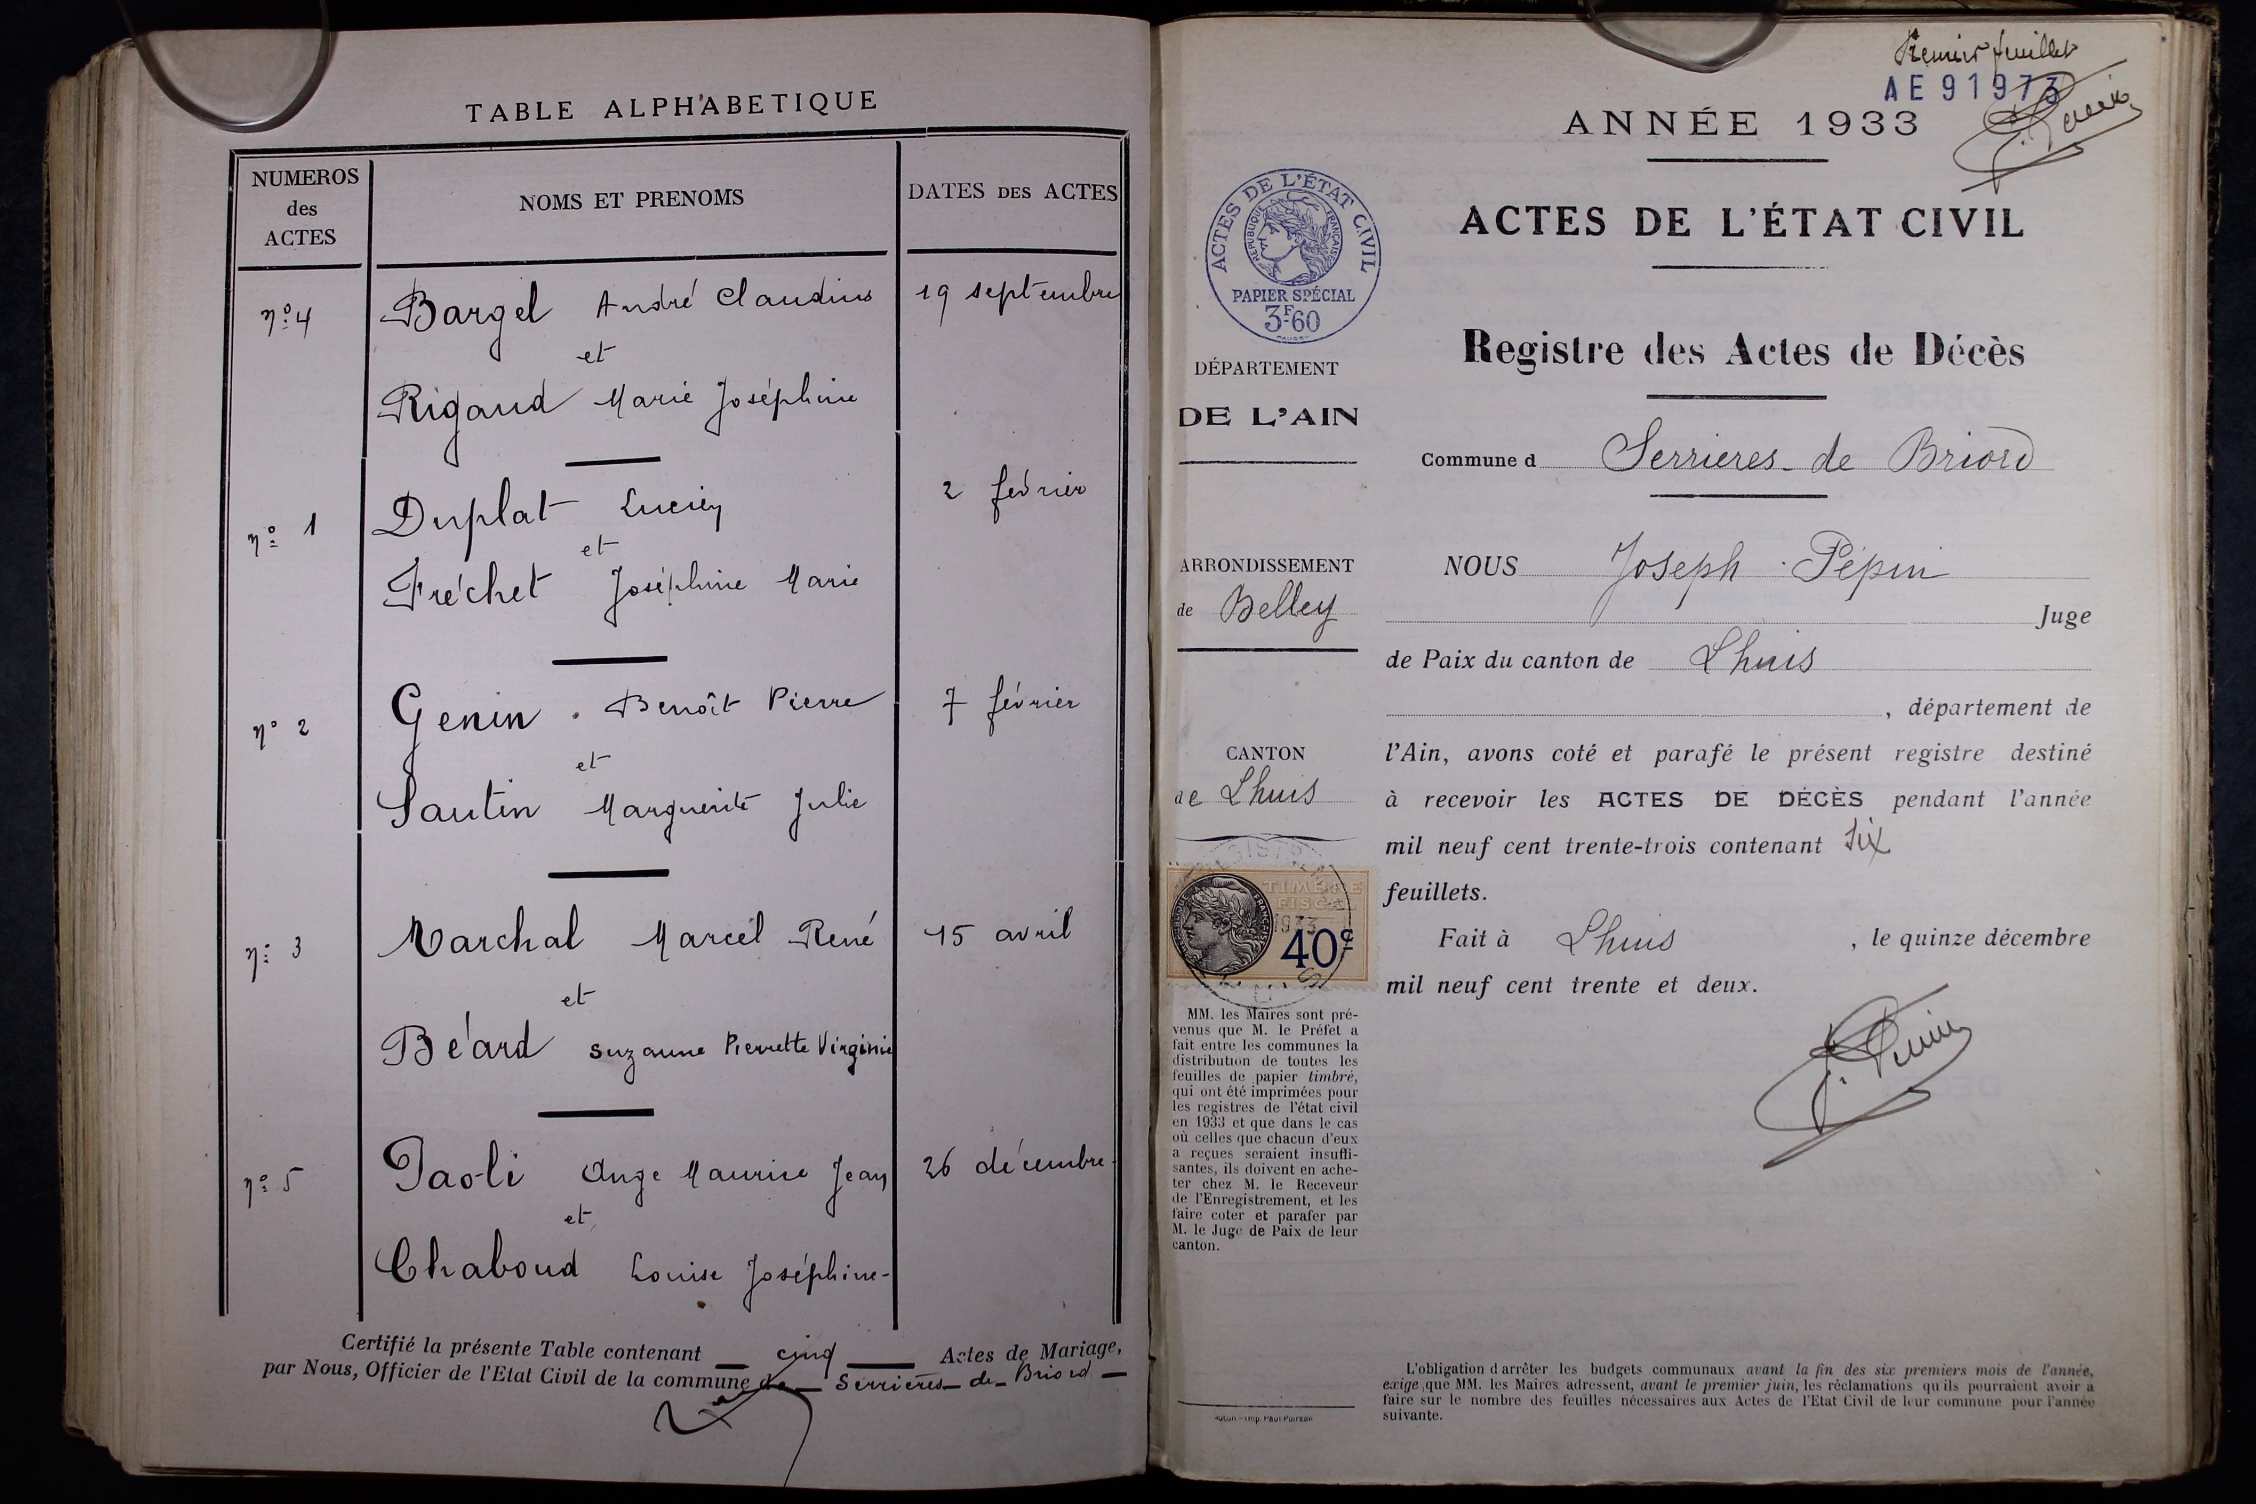 TABLE ALPHABETIQUE
NUMEROS
des
ACTES
NOMS ET PRENOMS
DATES DES ACTES
nº 4 Bargel André Claudius 19 septembre
et
Rigaud Marie Joséphine
nº 1 Duplat Lucien 2 février
et
Fréchet Joséphine Marie
nº 2 Genin Benoît Pierre 7 février
et
Sautin Marguerite Julie
nº 3 Marchal Marcel René 15 avril
et
Béard Suzanne Pierrette Virginie
nº 5 Paoli Ange Maurice Jean 26 décembre
et
Chaboud Louise Joséphine
Certifié la présente Table contenant cinq Actes de Mariage,
par Nous, Officier de l'Etat Civil de la commune de Serrières-de-Briord
Premier feuillet
AE91973
J. Pépin
ANNÉE 1933
ACTES DE L'ÉTAT CIVIL
Registre des Actes de Décès
Commune d Serrieres-de Briord
NOUS Joseph Pépin
Juge
de Paix du canton de Lhuis
, département de
l'Ain, avons coté et parafé le présent registre destiné
à recevoir les ACTES DE DÉCÈS pendant l'année
mil neuf cent trente-trois contenant six
feuillets.
Fait à Lhuis , le quinze décembre
mil neuf cent trente et deux.
J. Pépin
ACTES DE L'ÉTAT CIVIL
REPUBLIQUE FRANÇAISE
PAPIER SPÉCIAL
3F60
DÉPARTEMENT
DE L'AIN
ARRONDISSEMENT
de Belley
CANTON
de Lhuis
TIMBRE
FISCAL
1933
40c
MM. les Maires sont pré-
venus que M. le Préfet a
fait entre les communes la
distribution de toutes les
feuilles de papier timbré,
qui ont été imprimées pour
les registres de l'état civil
en 1933 et que dans le cas
où celles que chacun d'eux
a reçues seraient insuffi-
santes, ils doivent en ache-
ter chez M. le Receveur
de l'Enregistrement, et les
faire coter et parafer par
M. le Juge de Paix de leur
canton.
L'obligation d'arrêter les budgets communaux avant la fin des six premiers mois de l'année,
exige que MM. les Maires adressent, avant le premier juin, les réclamations qu'ils pourraient avoir à
faire sur le nombre des feuilles nécessaires aux Actes de l'Etat Civil de leur commune pour l'année
suivante.